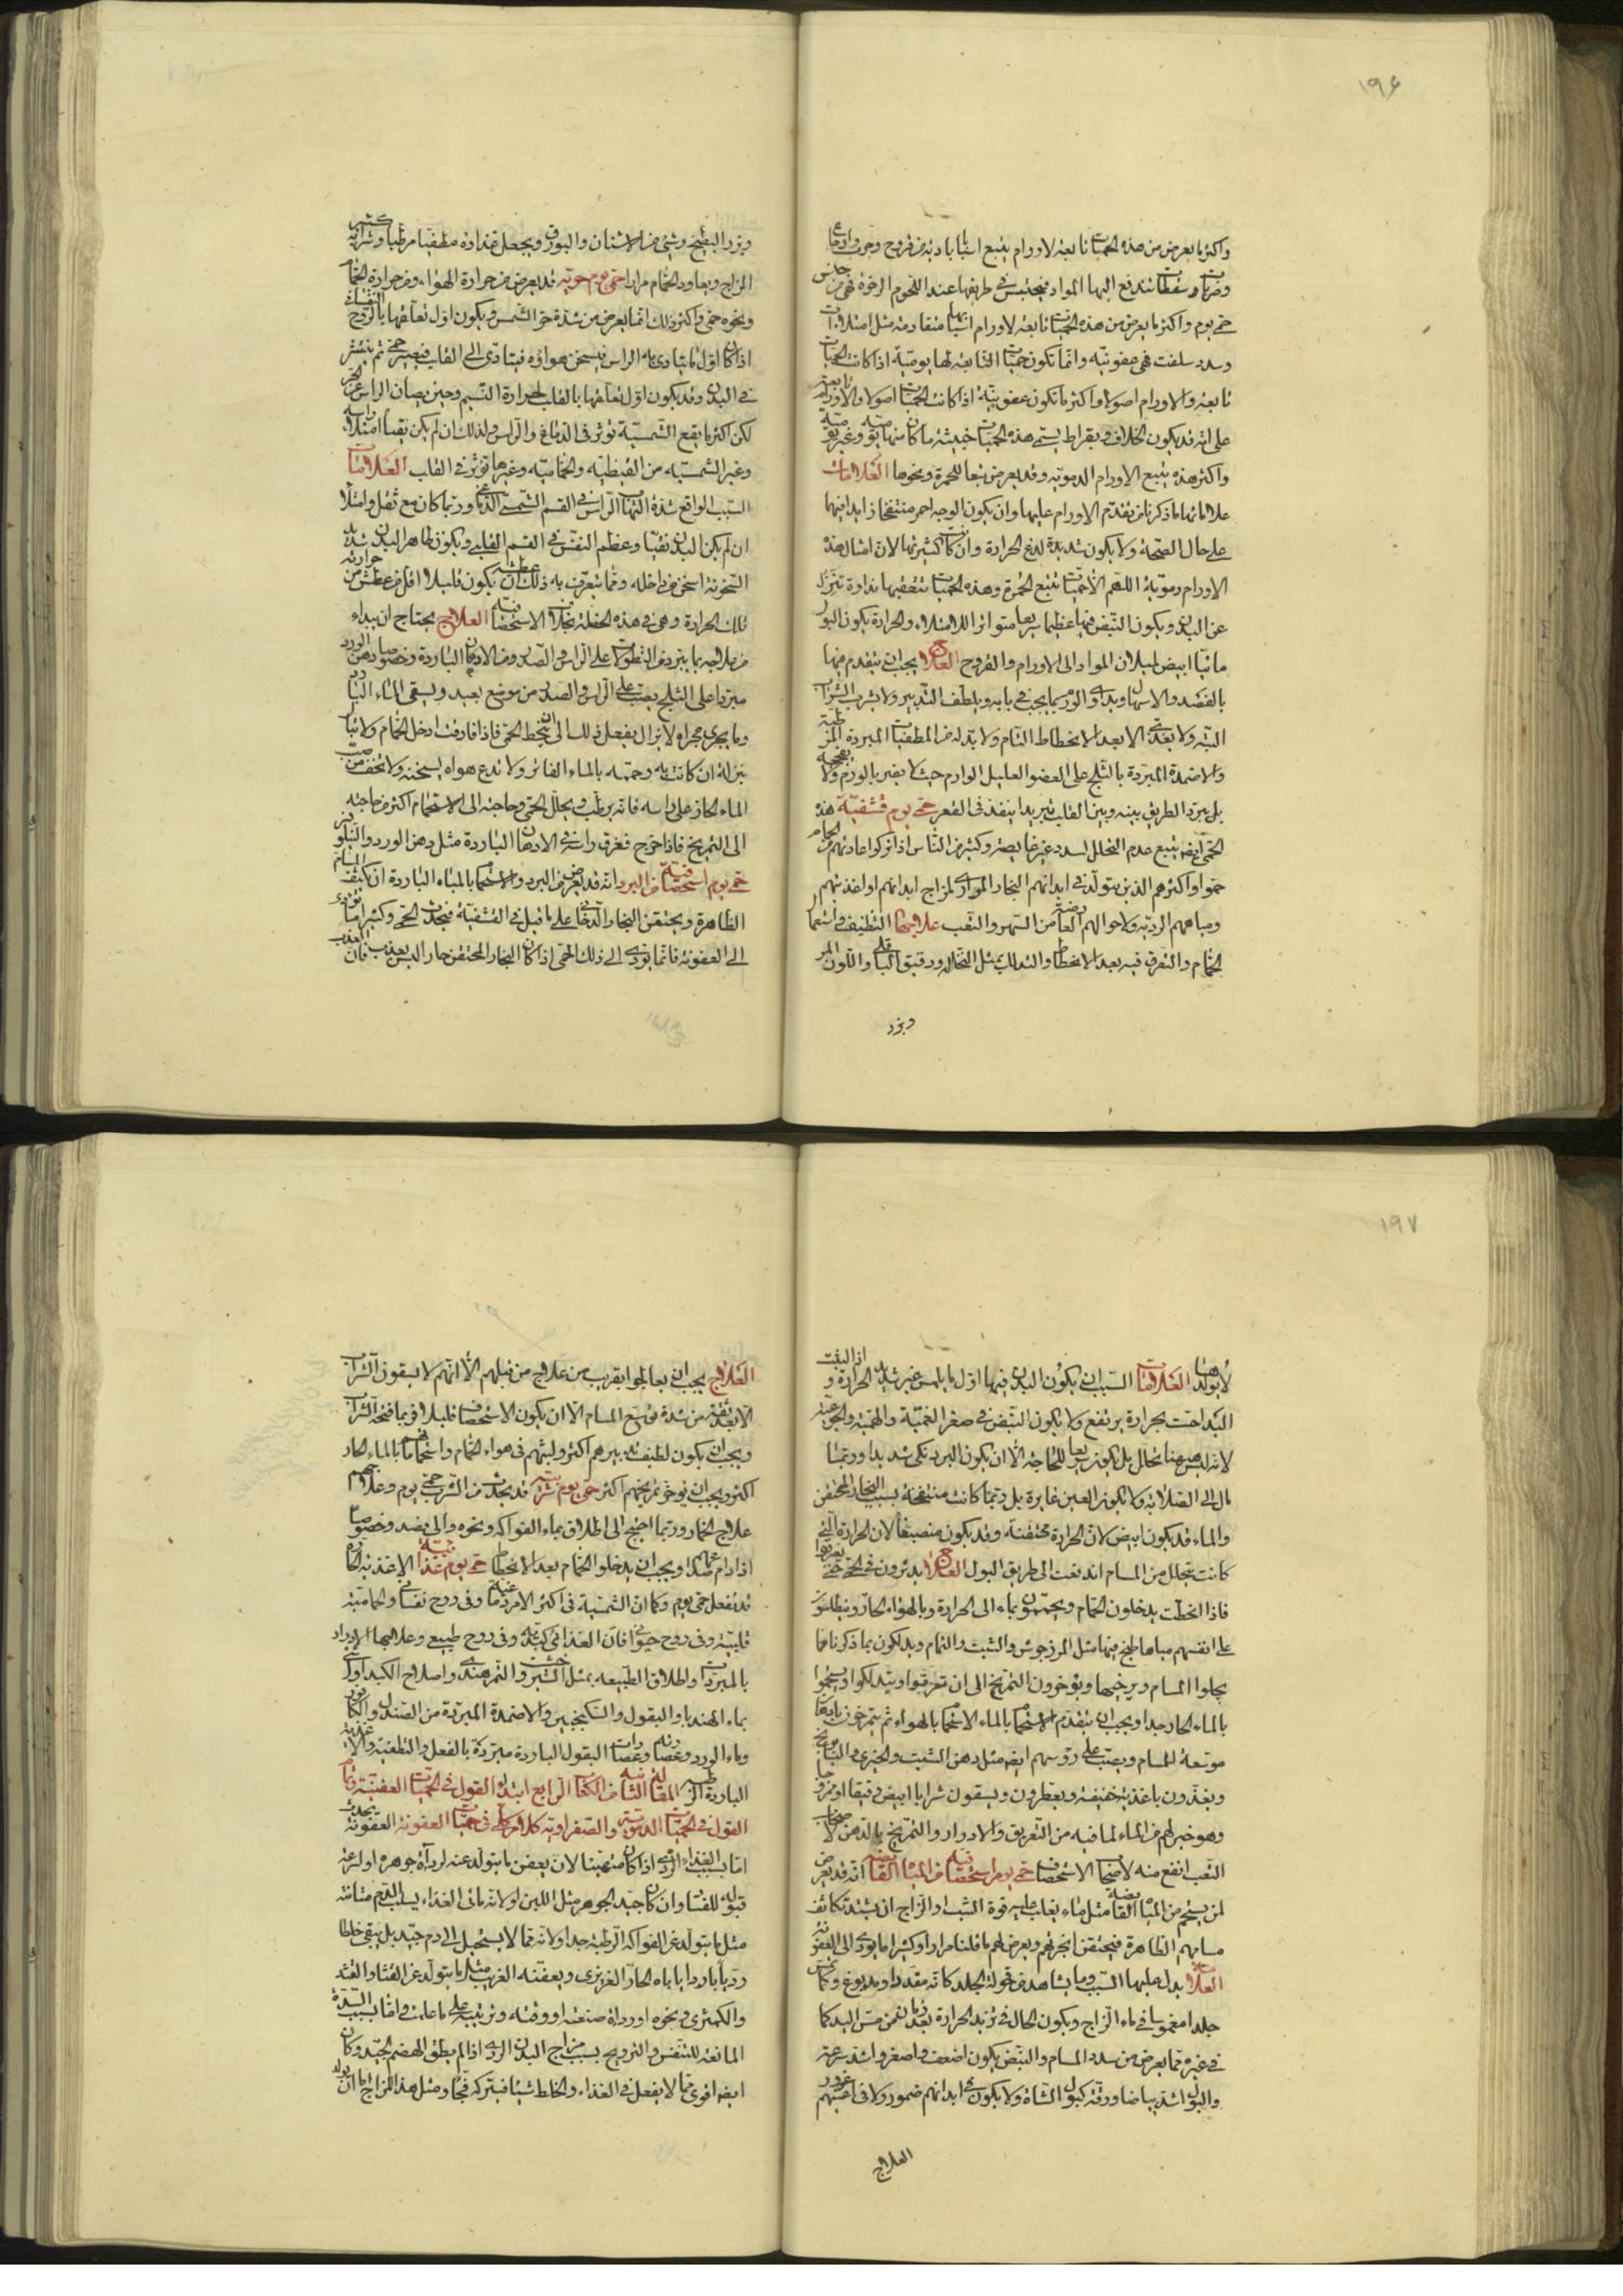 ١٩٤
واكثر ما يعرض من هذه الحميات تابعة لاورام يتبع اسبابا بادية من قروح وجرب واوجاع
وضربات وسقطات تندفع اليها المواد فيحتبس في طريقها عند اللحوم الرخوة فهى من جنس
حمى يوم واكثر ما يعرض من هذه الحميات تابعة لاورام اسبابها متقادمة مثل امتلاءات
وسدد سلفت فهى عفونية وانما تكون حميات التابعة لها يومية اذا كانت الحميات
تابعة والاورام اصولا واكثر ما تكون عفونية اذا كانت الحميات اصولا والاورام تابعة
على انه قد يكون الخلاف وبقراط يسمى هذه الحميات خبيثة ما كان منها
واكثر هذه يتبع الاورام الدموية وقد يعرض تبعا للحمرة ونحوها العلامات
علاماتها ما ذكرنا من تقدم الاورام عليها وان يكون الوجه احمر منتفخا زايدا فيها
على حال الصحة ولا يكون شديدة لذع الحرارة وان كانت كثيرتها لان امثال هذه
الاورام دموية اللهم الا حميات تتبع الحمرة وهذه الحميات تتعقبها نداوة تنزل
عن البدن ويكون النبض فيها عظيما سريعا متواترا للامتلاء والحرارة يكون البول
مائيا ابيض لميلان المواد الى الاورام والقروح العلاج يجب ان يتقدم فيها
بالفصد والاسهال ويداوى الورم بما يجب في بابه ويلطف التدبير ولا يشرب الشراب
البتة ولا يغذى الا بعد الانحطاط التام ولا بد له من المطفيات المبردة المرطبة
والاضمدة المبردة بالثلج على العضو العليل الوارم حيث لا يضر بالورم ولا يفججه
بل يبرد الطريق بينه وبين القلب تبريدا ينفذ في القعر حمى يوم قشفية هذه
الحمى ايضا يتبع عدم التحلل لسدد غير غايصة وكثير من الناس اذا تركوا عادتهم من الحمام
حموا واكثرهم الذين يتولد في ابدانهم البخار المرارى لمزاج ابدانهم او اغذيتهم
ومياههم الردية ولاحوالهم العارضة من السهر والتعب علاجها التنظيف واستعمال
الحمام والتعرق فيه بعد الانحطاط والتدلك بمثل النخالة ودقيق الباقلى واللوز المر
وبزر
وبزر البطيخ وشئ من الاشنان والبورق ويجعل غذاؤه مطفيا مرطبا وشرابه كثير
المزاج ويعاود الحمام مرارا حمى يوم حرية قد يعرض من حرارة الهواء ومن حرارة الحمام
ونحوه حمى واكثر ذلك انما يعرض من شدة حر الشمس ويكون اول تعلقها بالروح النفسانى
اذا كان اول ما يتادى به الراس فيسخن هواؤه فيتادى الى القلب فيصير حمى ثم ينتشر
في البدن وقد يكون اول تعلقها بالقلب لحرارة النسيم وحين يصان الراس عن الحر
لكن اكثر ما يقع الشمسية تؤثر في الدماغ والراس ولذلك ان لم يكن نقيا امتلا راسه
وغير الشمسية من القيظية والحمامية وغيرها تؤثر في القلب العلامات
السبب الواقع شدة التهاب الراس في القسم الشمسى الدماغى وربما كان مع ثقل وامتلا
ان لم يكن البدن نقيا وعظم النفس في القسم القلبى ويكون ظاهر البدن شديد
السخونة اسخن من داخله ومما يتعرف به ذلك ان عطشه يكون قليلا اقل من عطش من حرارته
تلك الحرارة وهى في هذه الخصلة بخلاف الاستحصافية العلاج يحتاج ان يبداء
من علاجه بما يبرد من النطولات على الراس والصدر ومن الادهان الباردة وخصوصا دهن الورد
مبردا على الثلج يصب على الراس والصدر من موضع بعيد ويسقى الماء البارد
وما يجرى مجراه ولا يزال يفعل ذلك الى ان ينحط الحمى فاذا فارقت ادخل الحمام ولا تبال
بنزلة ان كانت به وحممه بالماء الفاتر ولا تدع هواه يسخنه ولا تخف من صب
الماء الحار على راسه فانه يرطب ويحلل الحمى وحاجته الى الاستحمام اكثر من حاجته
الى التمريخ فاذا خرج فغرق راسه في الادهان الباردة مثل دهن الورد والنيلوفر
حمى يوم استحصافية من البرد انه قد يعرض من البرد والاستحمام بالمياه الباردة ان يكثف المسام
الظاهرة ويحتقن البخار الدخانى على ما قيل في القشفية فيحدث الحمى وكثيرا ما يؤدى
الى العفونة فانما يؤدى الى ذلك الحمى اذا كان البخار المحتقن حارا ليس بعذب فان العذب
١٩٧
لا يولدها العلامات السبب ان يكون البدن فيها اول ما يلمس غير شديد الحرارة واذا لبثت
اليد احست بحرارة يرتفع ولا يكون النبض في صغر الغمية والهمية والجوعية
لانه ليس ههنا تحلل بل يكون سريعا للحاجة الا ان يكون البرد نكى شديدا وربما
مال الى الصلابة ولا يكون العين غايرة بل ربما كانت منتفخة بسبب البخار المحتقن
والماء قد يكون ابيض لان الحرارة محتقنة وقد يكون منصبغا لان الحرارة التى
كانت تتحلل من المسام اندفعت الى طريق البول العلاج يدثرون في الحمى حتى يعرقوا
فاذا انحطت يدخلون الحمام ويحممون بماء الى الحرارة وبالهواء الحار ويبطلون
على انفسهم مياها طبخ فيها مثل المرزجوش والشبث والنمام ويدلكون بما ذكرنا مما
يجلوا المسام ويرخيها ويؤخرون التمريخ الى ان تعرقوا ويتدلكوا ويستحموا
بالماء الحار جدا ويجب ان يتقدم الاستحمام بالماء الاستحمام بالهواء ثم يتمرخون بادهان
موسعة للمسام ويصب على رؤسهم ايضا مثل دهن الشبث والخيرى والبابونج
ويغذون باغذية خفيفة ويعطرون ويسقون شرابا ابيض رقيقا او ممزوجا
وهو خير لهم من الماء لما فيه من التعريق والادرار والتمريخ بالدهن لاصحاب
التعب انفع منه لاصحاب الاستحصاف حمى يوم استحصافية من المياه القابضة انه قد يعرض
لمن يستحم من المياه القابضة مثل ماء يغلب عليه قوة الشب والزاج ان يشتد تكاثف
مسامهم الظاهرة فيحتقن ابخرتهم ويعرض لهم ما قلنا مرارا وكثيرا ما يؤدى الى العفونة
العلامات يدل عليها السبب وما يشاهد من قحولة الجلد كانه مقدد او مدبوغ وكان
جلدا مغموسا في ماء الزاج ويكون الحال في تزيد الحرارة بعد زمان من مس اليد كما
في غيره مما يعرض من سدد المسام والنبض يكون اضعف واصغر واشد سرعة
والبول اشد بياضا ورقة كبول الشاة ولا يكون في ابدانهم ضمور ولا في اعينهم غؤور
العلاج
العلاج يجب ان يعالجوا بقريب من علاج من قبلهم الا انهم لا يسقون الشراب
الا بعد ثقة من شدة توسع المسام الا ان يكون الاستحصاف قليلا فربما فتحه الشراب
ويجب ان يكون لطيف تدبيرهم اكثر ولبثهم في هواء الحمام واستحمامهم بالماء الحار
اكثر ويجب ان يؤخر تمريخهم اكثر حمى يوم شرابية قد يحدث من الشرب حمى يوم وعلاجهم
علاج الخمار وربما احتيج الى اطلاق بماء الفواكه ونحوه والى فصد وخصوصا
اذا دام صداعا ويجب ان يدخلوا الحمام بعد الانحطاط حمى يوم غذائية الاغذية الحارة
قد تفعل حمى يوم وكما ان الشمسية في اكثر الامر دماغية وفي روح نفسانى والحمامية
قلبية وفي روح حيوانى فان الغذائى كبدية وفي روح طبيعى وعلاجها الادرار
بالمبردات واطلاق الطبيعه بمثل الشيرخشت والتمر هندى واصلاح الكبد اولا
بماء الهندبا والبقول والسكنجبين والاضمدة المبردة من الصندل والكافور
وماء الورد وعصارته وعصارات البقول الباردة مبردة بالفعل والتطفية والاغذية
الباردة الرطبة المقالة الثانية من الكتاب الرابع ابتداء القول في الحميات العفنية واما
القول في الحميات الدموية والصفراوية كلام كلى في حميات العفونة العفونة يحدث
اما بسبب الغذاء الردى اذا كان متهيئا لان يعفن ما يتولد عنه لرداءة جوهره او لسرعة
قبوله للفساد وان كان جيد الجوهر مثل اللبن او لانه مائى الغذاء يسلب الدم متانته
مثل ما يتولد عن الفواكه الرطبة جدا او لانه مما لا يستحيل الى دم جيد بل يبقى خلطا
رديا باردا ياباه الحار الغريزى ويعفنه الغريب مثل ما يتولد عن القثا والقثد
والكمثرى ونحوه او رداءة صنعته او وقته وترتيبه على ما علمت واما بسبب السدة
المانعة للتنفس والترويح بسبب مزاج البدن الردى اذا لم يطق الهضم الجيد وكان
ايضا اقوى مما لا يفعل في الغذاء والخلط شيئا فيتركه فجا ومثل هذا المزاج اما ان يولد